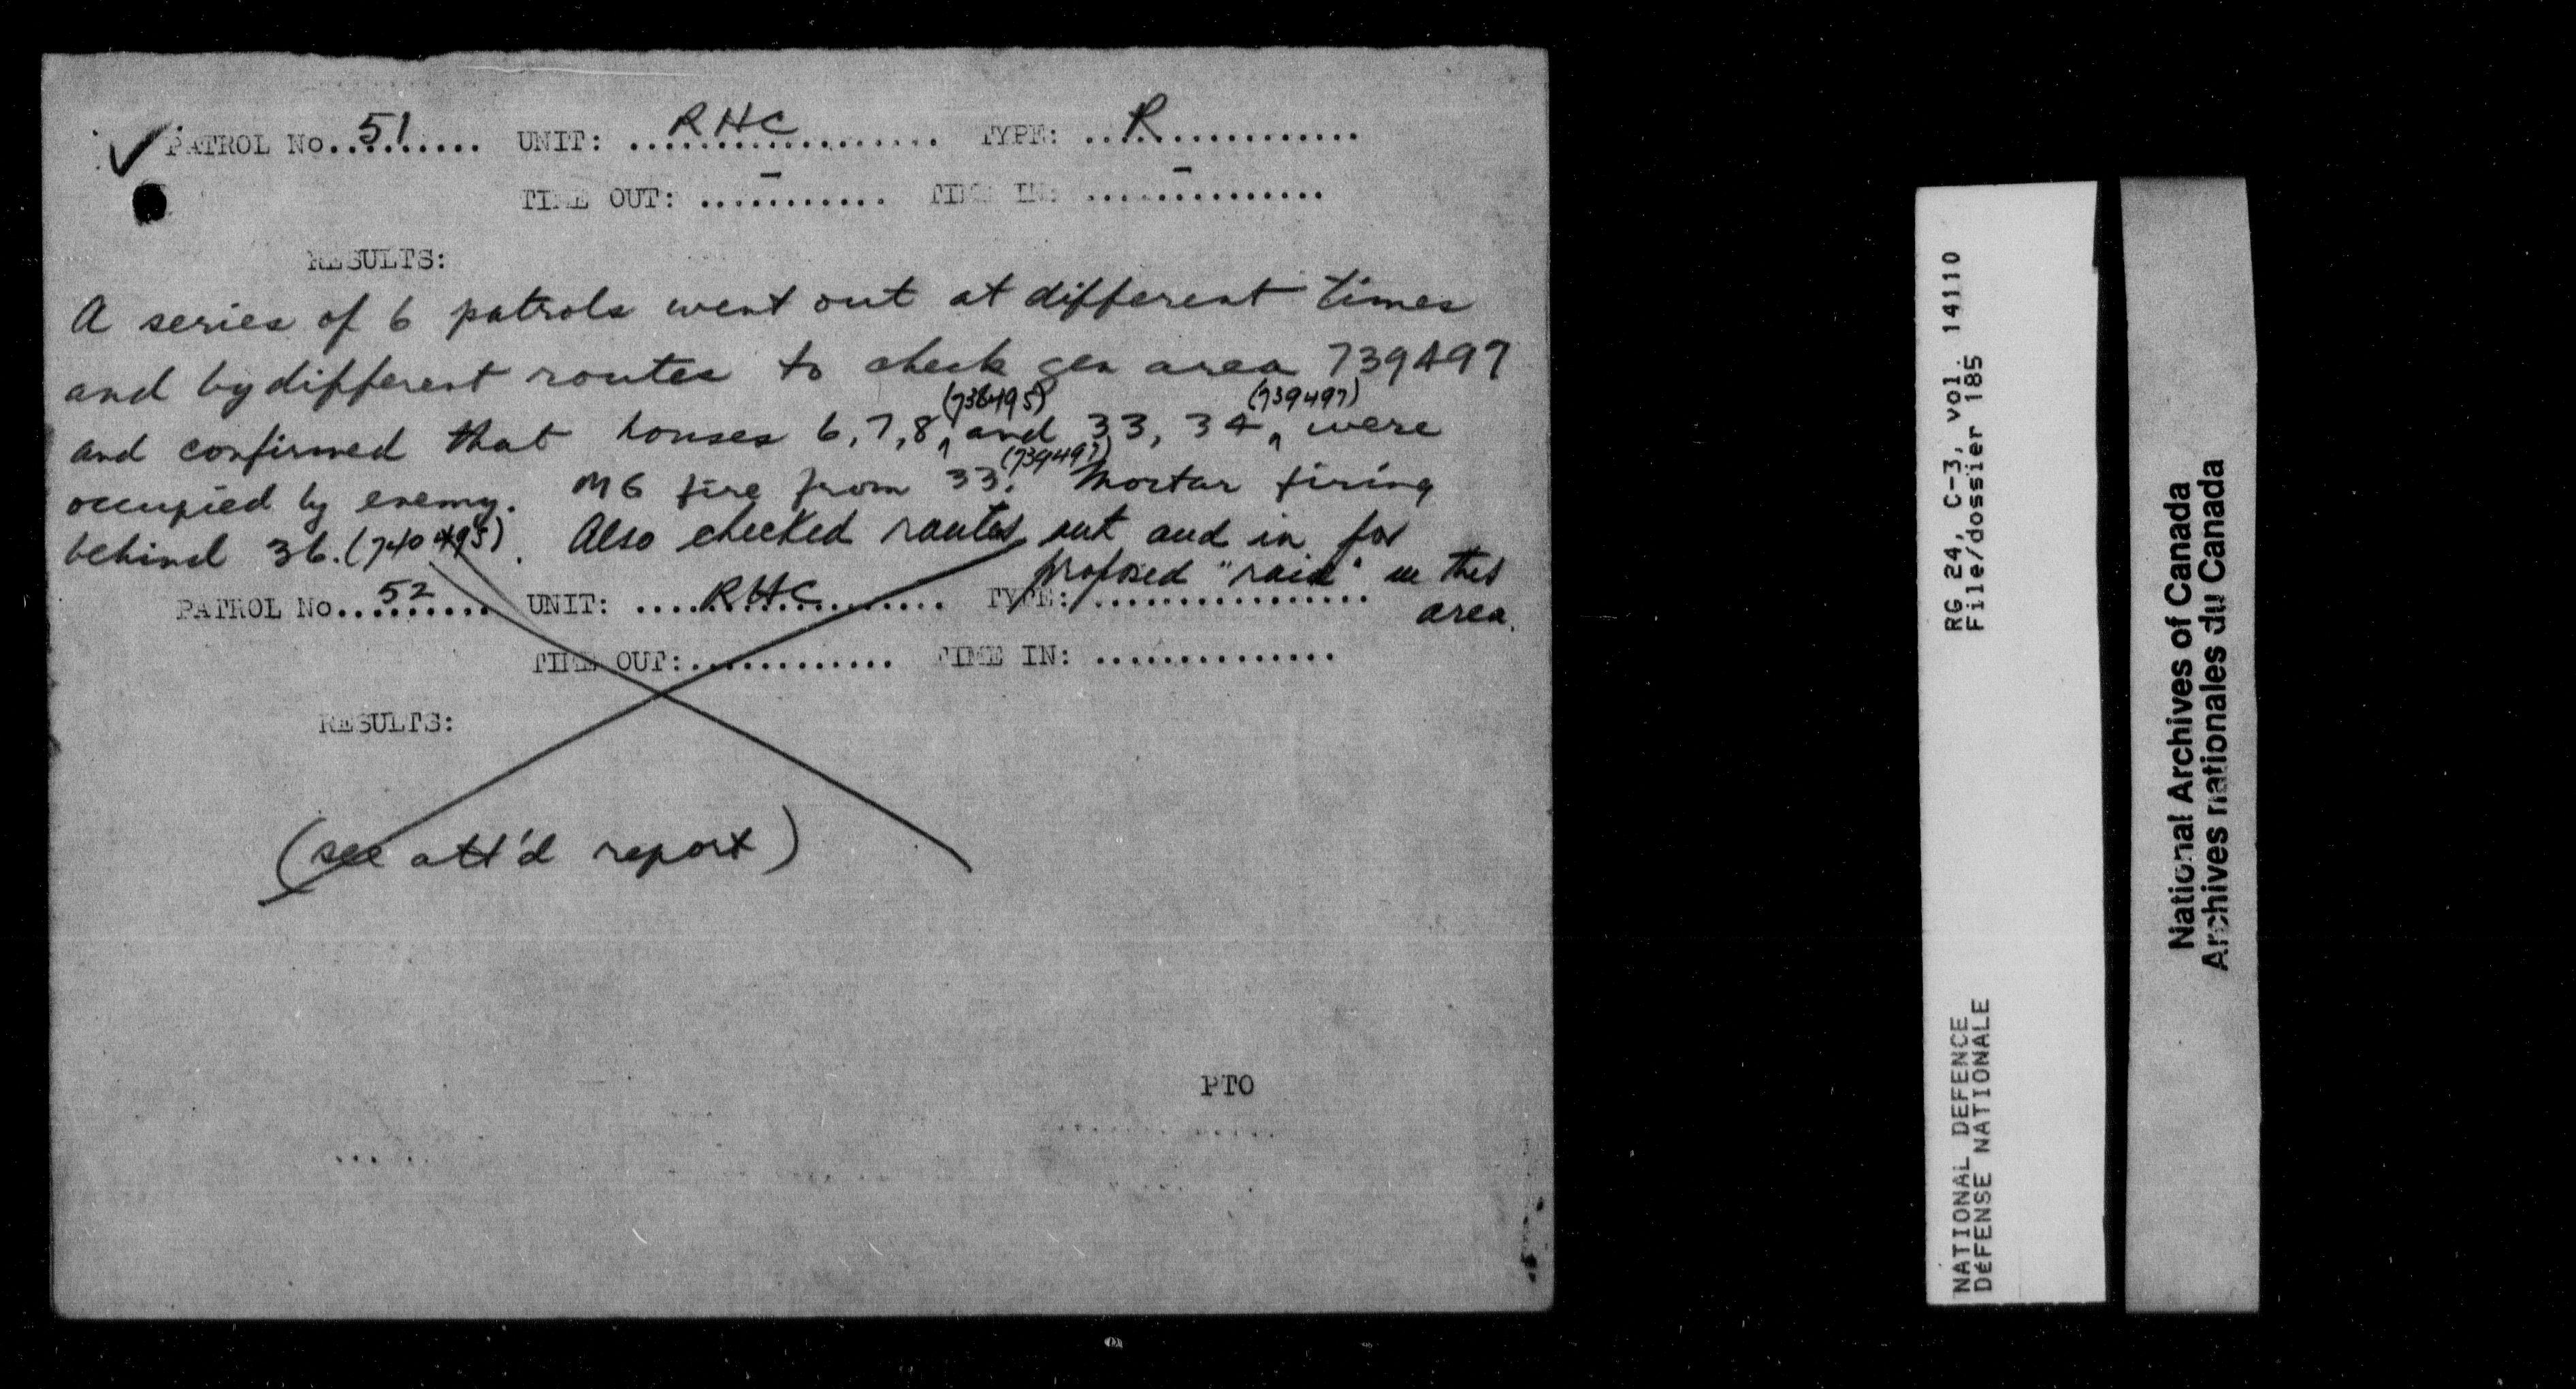 ✓ PATROL No. 51 UNIT: RHC TYPE: R
TIME OUT: – TIME IN: –
RESULTS:
A series of 6 patrols went out at different times
and by different routes to check gen area 739497
(736495) (739497)
and confirmed that houses 6, 7, 8, and 33, 34, were
(739497)
occupied by enemy. MG fire from 33. Mortar firing
behind 36. (740495). Also checked routes out and in for
proposed "raid" in this
area.
PATROL No. 52 UNIT: RHC TYPE:
TIME OUT: TIME IN:
RESULTS:
(see att'd report)
PTO
RG 24, C-3, vol. 14110
File/dossier 185
NATIONAL DEFENCE
DÉFENSE NATIONALE
National Archives of Canada
Archives nationales du Canada